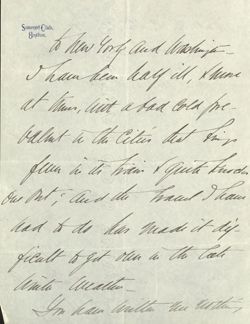 Somerset Club,
Boston.
to New York and Washington—
I have been half ill, & more
at times, with a bad cold pre-
valent in the Cities that brings
fever in its train & quite knocks
one out; and the travel I have
had to do has made it dif-
ficult to get over in the late
Winter weather—
You have written me